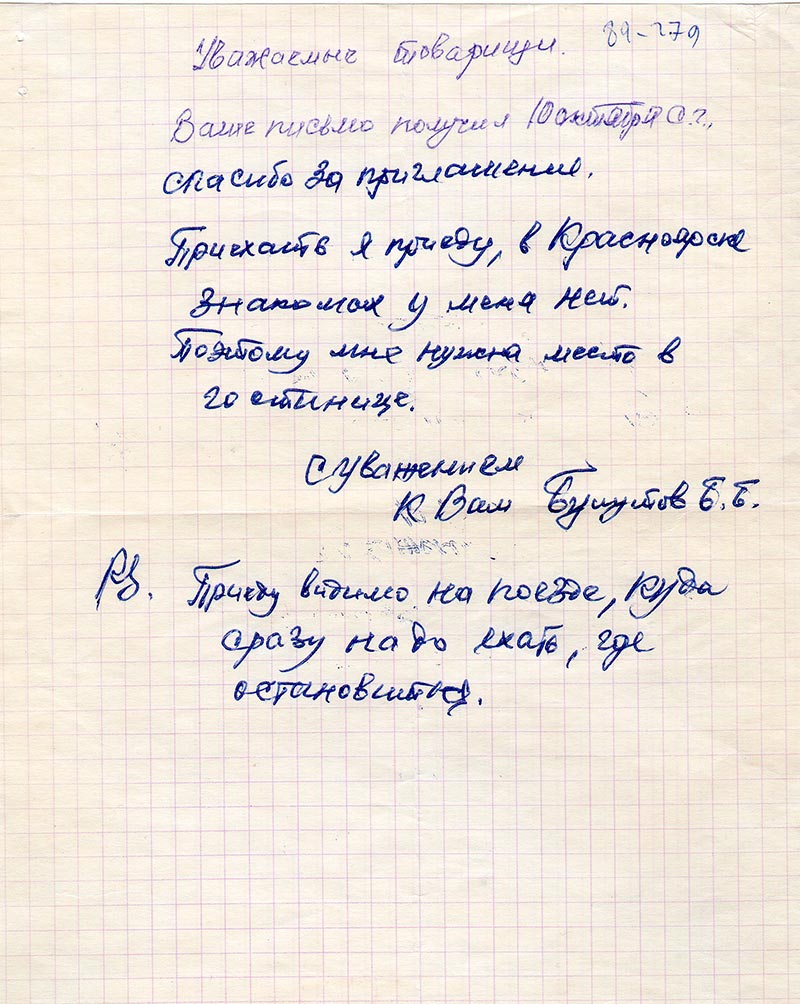 89-279
Уважаемые товарищи.
Ваше письмо получил 10 октября с.г.,
спасибо за приглашение.
Приехать я приеду, в Красноярске
знакомых у меня нет.
Поэтому мне нужна место в
гостинице.
С уважением
к Вам Б.Б.
PS. Приеду видимо на поезде, куда
сразу надо ехать, где
остановиться.